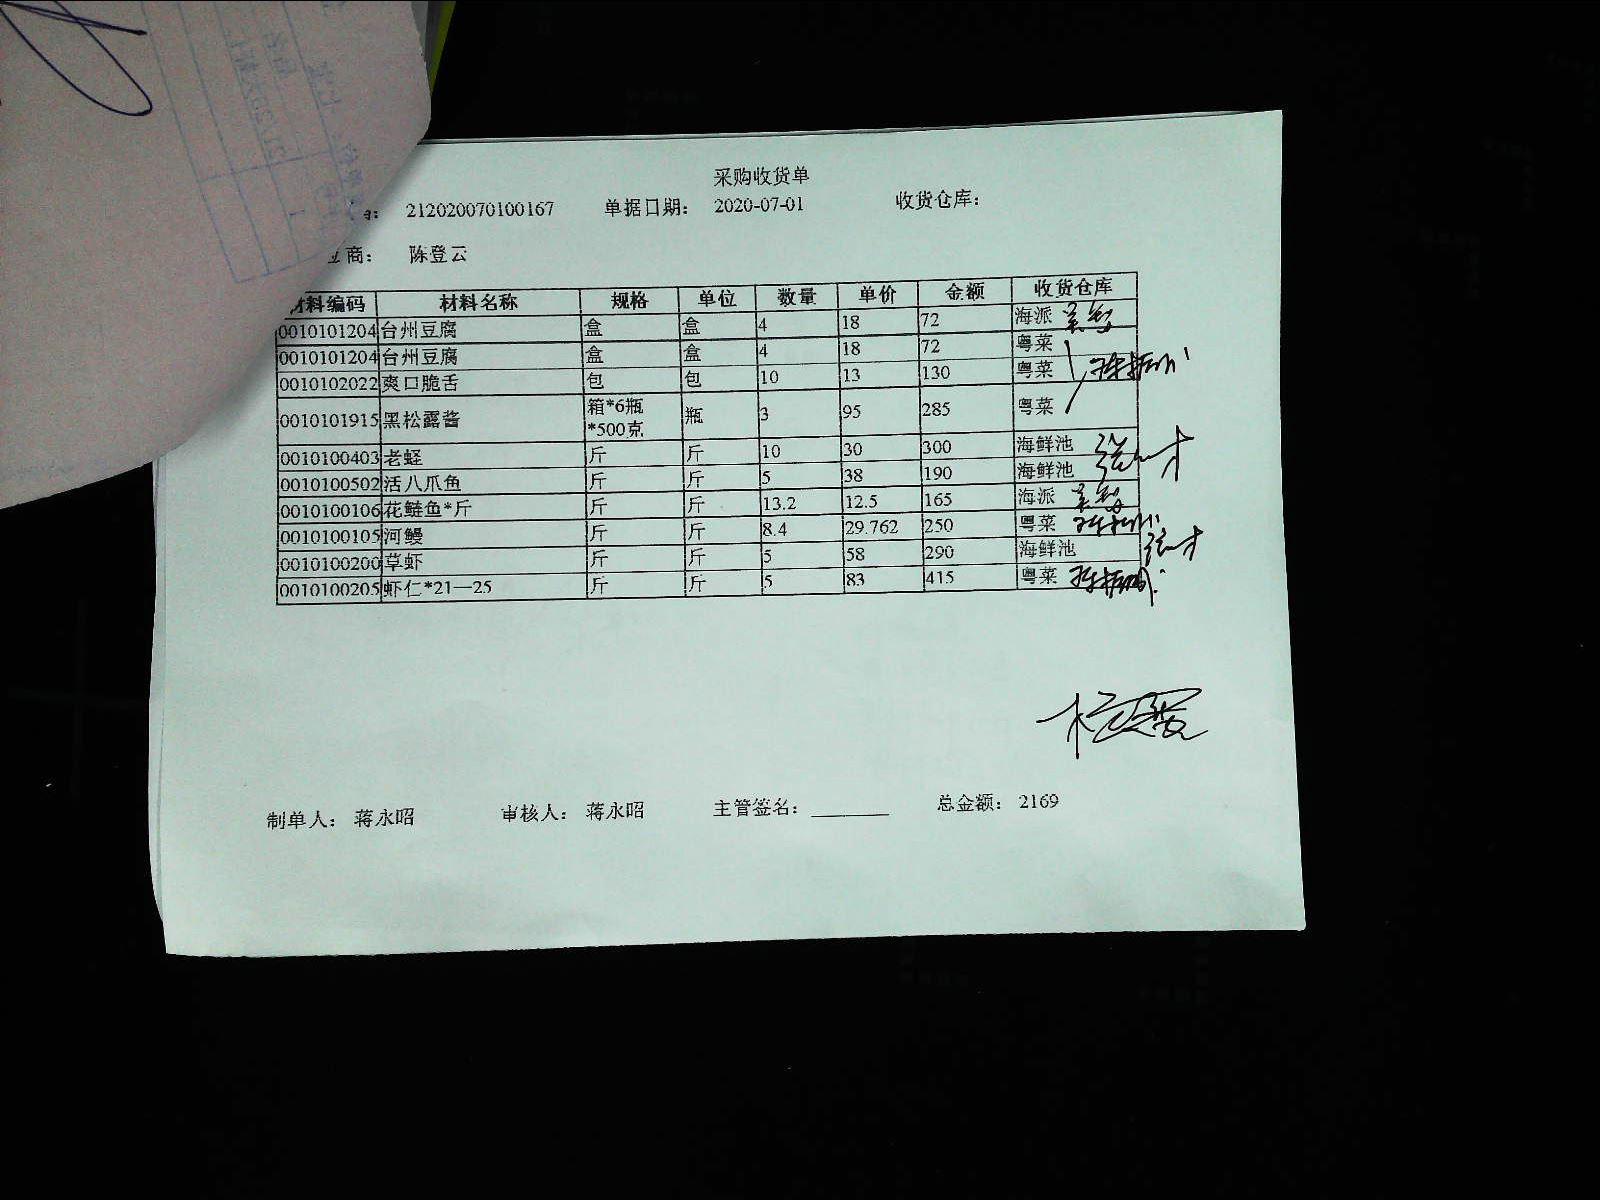 采购收货单
212020070100167 单据日期： 2020-07-01 收货仓库：
商： 陈登云
材料编码 材料名称 规格 单位 数量 单价 金额 收货仓库
0010101204 台州豆腐 盒 盒 4 18 72 海派
0010101204 台州豆腐 盒 盒 4 18 72 粤菜
0010102022 爽口脆舌 包 包 10 13 130 粤菜
0010101915 黑松露酱 箱*6瓶*500克 瓶 3 95 285 粤菜
0010100403 老蛏 斤 斤 10 30 300 海鲜池
0010100502 活八爪鱼 斤 斤 5 38 190 海鲜池
0010100106 花鲢鱼*斤 斤 斤 13.2 12.5 165 海派
0010100105 河鳗 斤 斤 8.4 29.762 250 粤菜
0010100200 草虾 斤 斤 5 58 290 海鲜池
0010100205 虾仁*21—25 斤 斤 5 83 415 粤菜
制单人： 蒋永昭 审核人： 蒋永昭 主管签名： 总金额： 2169